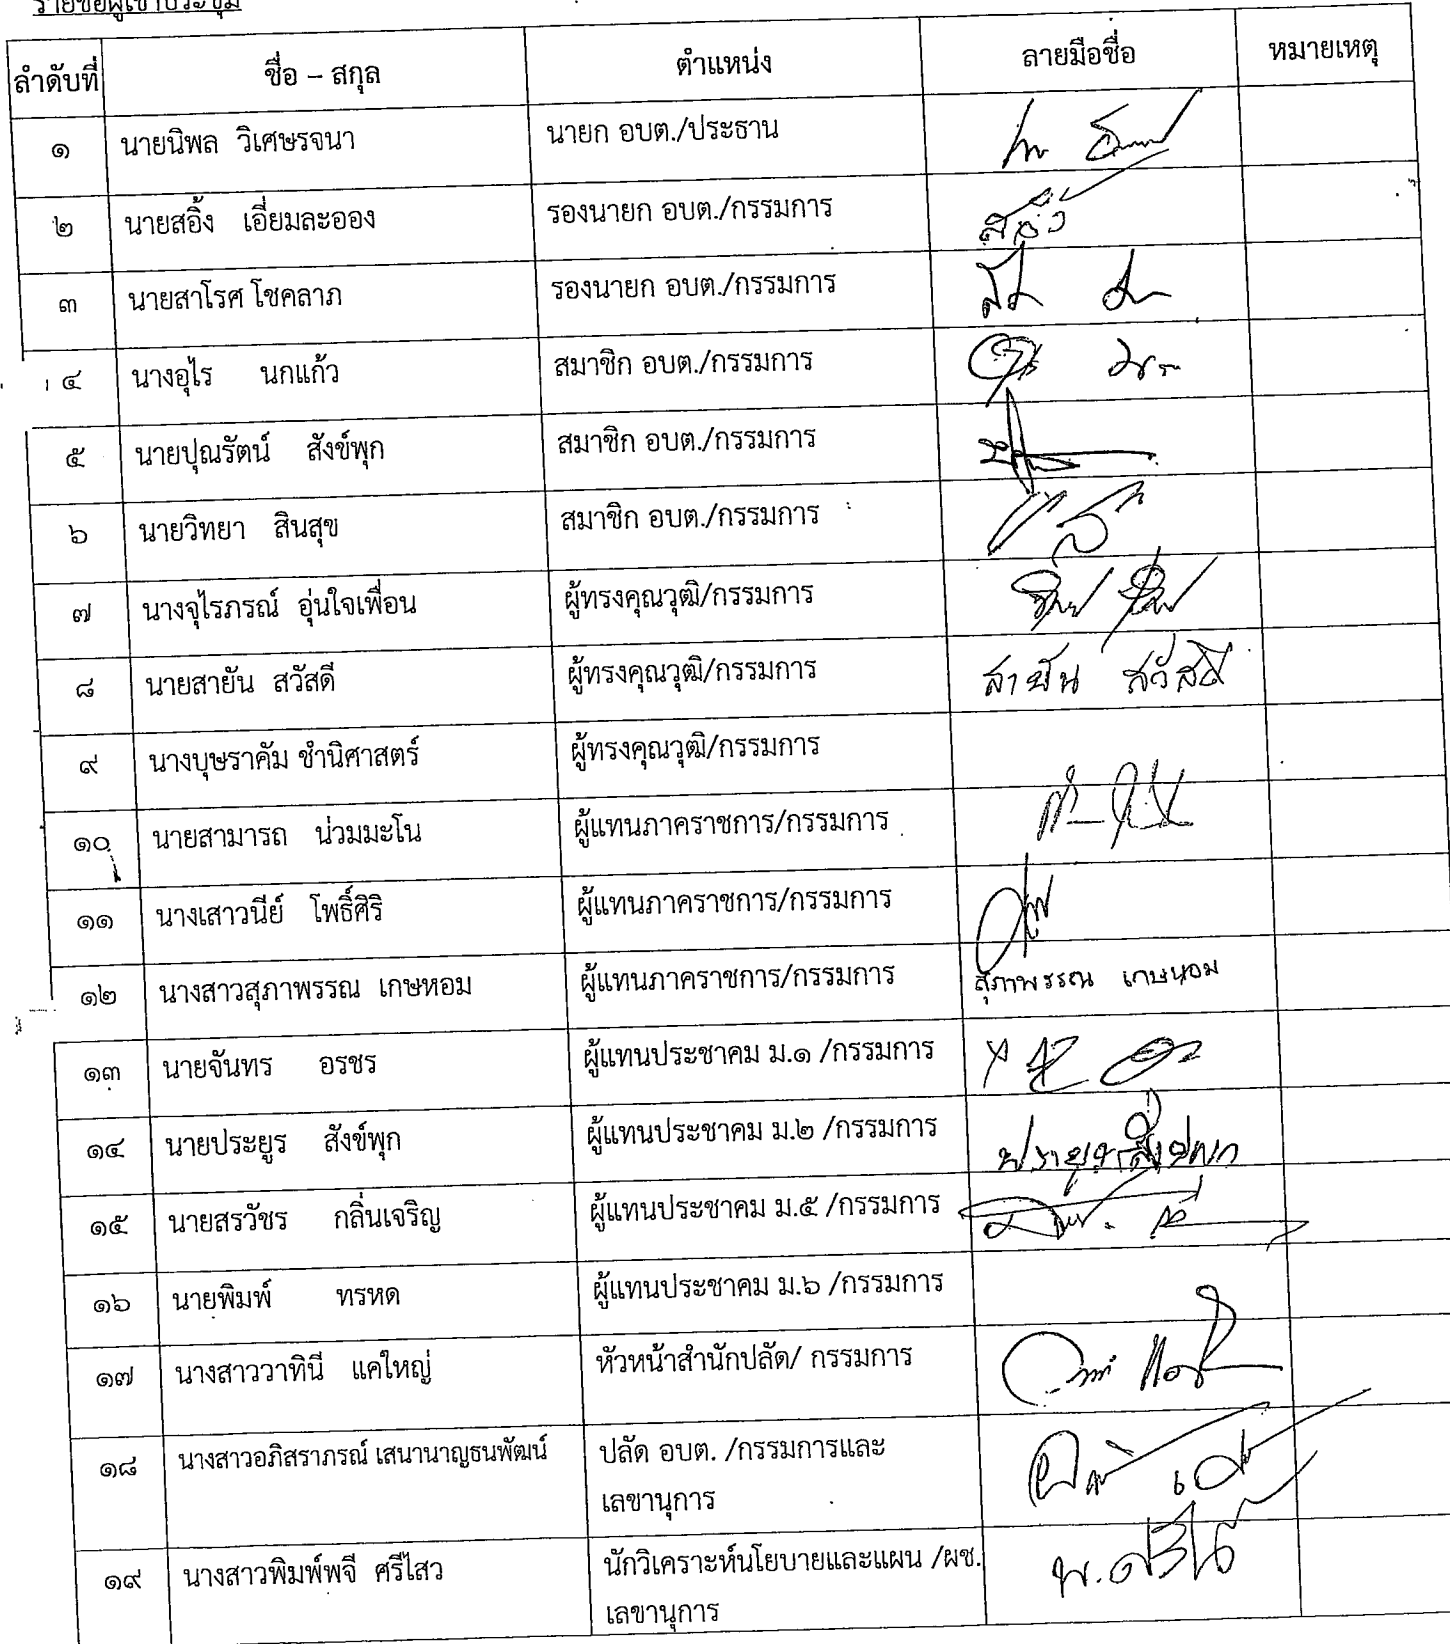 รายชื่อผู้เข้าประชุม
ลำดับที่ ชื่อ – สกุล ตำแหน่ง ลายมือชื่อ หมายเหตุ
๑ นายนิพล วิเศษรจนา นายก อบต./ประธาน
๒ นายสอิ้ง เอี่ยมละออง รองนายก อบต./กรรมการ สอิ้ง
๓ นายสาโรศ โชคลาภ รองนายก อบต./กรรมการ
๔ นางอุไร นกแก้ว สมาชิก อบต./กรรมการ
๕ นายปุณรัตน์ สังข์พุก สมาชิก อบต./กรรมการ
๖ นายวิทยา สินสุข สมาชิก อบต./กรรมการ
๗ นางจุไรภรณ์ อุ่นใจเพื่อน ผู้ทรงคุณวุฒิ/กรรมการ
๘ นายสายัน สวัสดี ผู้ทรงคุณวุฒิ/กรรมการ สายัน สวัสดี
๙ นางบุษราคัม ชำนิศาสตร์ ผู้ทรงคุณวุฒิ/กรรมการ
๑๐ นายสามารถ น่วมมะโน ผู้แทนภาคราชการ/กรรมการ
๑๑ นางเสาวนีย์ โพธิ์ศิริ ผู้แทนภาคราชการ/กรรมการ
๑๒ นางสาวสุภาพรรณ เกษหอม ผู้แทนภาคราชการ/กรรมการ สุภาพรรณ เกษหอม
๑๓ นายจันทร อรชร ผู้แทนประชาคม ม.๑ /กรรมการ
๑๔ นายประยูร สังข์พุก ผู้แทนประชาคม ม.๒ /กรรมการ ประยูร สังข์พุก
๑๕ นายสรวัชร กลิ่นเจริญ ผู้แทนประชาคม ม.๕ /กรรมการ
๑๖ นายพิมพ์ ทรหด ผู้แทนประชาคม ม.๖ /กรรมการ
๑๗ นางสาววาทินี แคใหญ่ หัวหน้าสำนักปลัด/ กรรมการ
๑๘ นางสาวอภิสราภรณ์ เสนานาญธนพัฒน์ ปลัด อบต. /กรรมการและ
เลขานุการ
๑๙ นางสาวพิมพ์พจี ศรีไสว นักวิเคราะห์นโยบายและแผน /ผช.
เลขานุการ